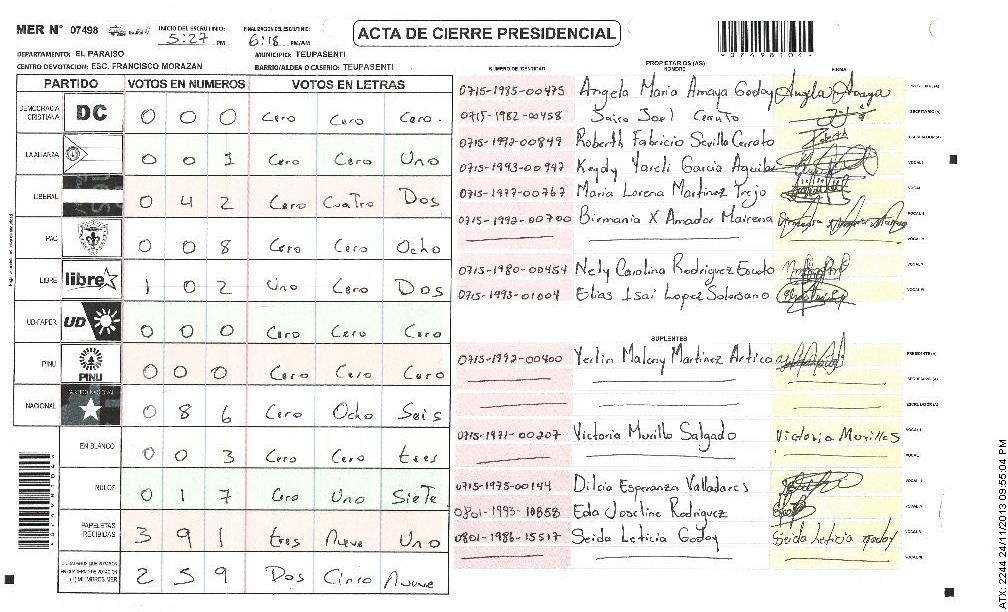 MER N° 07498 INICIO DEL ESCRUTINIO: 5:27 PM FINALIZACION DEL ESCRUTINIO: 6:18 PM/AM
ACTA DE CIERRE PRESIDENCIAL
DEPARTAMENTO: EL PARAISO MUNICIPIO: TEUPASENTI
CENTRO DE VOTACION: ESC. FRANCISCO MORAZAN BARRIO/ALDEA O CASERIO: TEUPASENTI
PARTIDO VOTOS EN NUMEROS VOTOS EN LETRAS
DEMOCRACIA CRISTIANA DC 0 0 0 Cero Cero Cero.
LA ALIANZA 0 0 1 Cero Cero Uno
LIBERAL 0 4 2 Cero Cuatro Dos
PAC 0 0 8 Cero Cero Ocho
LIBRE libre 1 0 2 Uno Cero Dos
UD-FAPER UD 0 0 0 Cero Cero Cero
PINU PINU 0 0 0 Cero Cero Cero
NACIONAL PARTIDO NACIONAL 0 8 6 Cero Ocho Seis
EN BLANCO 0 0 3 Cero Cero tres
NULOS 0 1 7 Cero Uno SieTe
PAPELETAS RECIBIDAS 3 9 1 tres Nueve Uno
CIUDADANOS QUE VOTARON EN CUADERNO DE VOTACION (+) MIEMBROS MER 2 5 9 Dos Cinco Nueve
NUMERO DE IDENTIDAD PROPIETARIOS (AS) NOMBRE FIRMA
0715-1985-00475 Angela Maria Amaya Godoy Angela Amaya
0715-1982-00458 Jairo Joel Cerrato SECRETARIO (A)
0715-1992-00849 Roberth Fabricio Sevilla Cerrato Roberth ESCRUTADOR (A)
0715-1993-00947 Keydy Yareli Garcia Aguilar VOCAL I
0715-1977-00767 Maria Lorena Martinez Trejo
0715-1992-00700 Birmania X Amador Mairena
0715-1980-00454 Nely Carolina Rodriguez Escoto
0715-1993-01004 Elias Isai Lopez Solorsano
SUPLENTES
0715-1992-00400 Yerlin Maleny Martinez Artica PRESIDENTE (A)
SECRETARIO (A)
ESCRUTADOR (A)
0715-1971-00207 Victoria Murillo Salgado Victoria Murillo S
0715-1975-00144 Dilcia Esperanza Valladares
0801-1993-10858 Eda Joseline Rodriguez
0801-1986-15517 Seida Leticia Godoy Seida Leticia Godoy
ATX: 2244 24/11/2013 09:55:04 PM